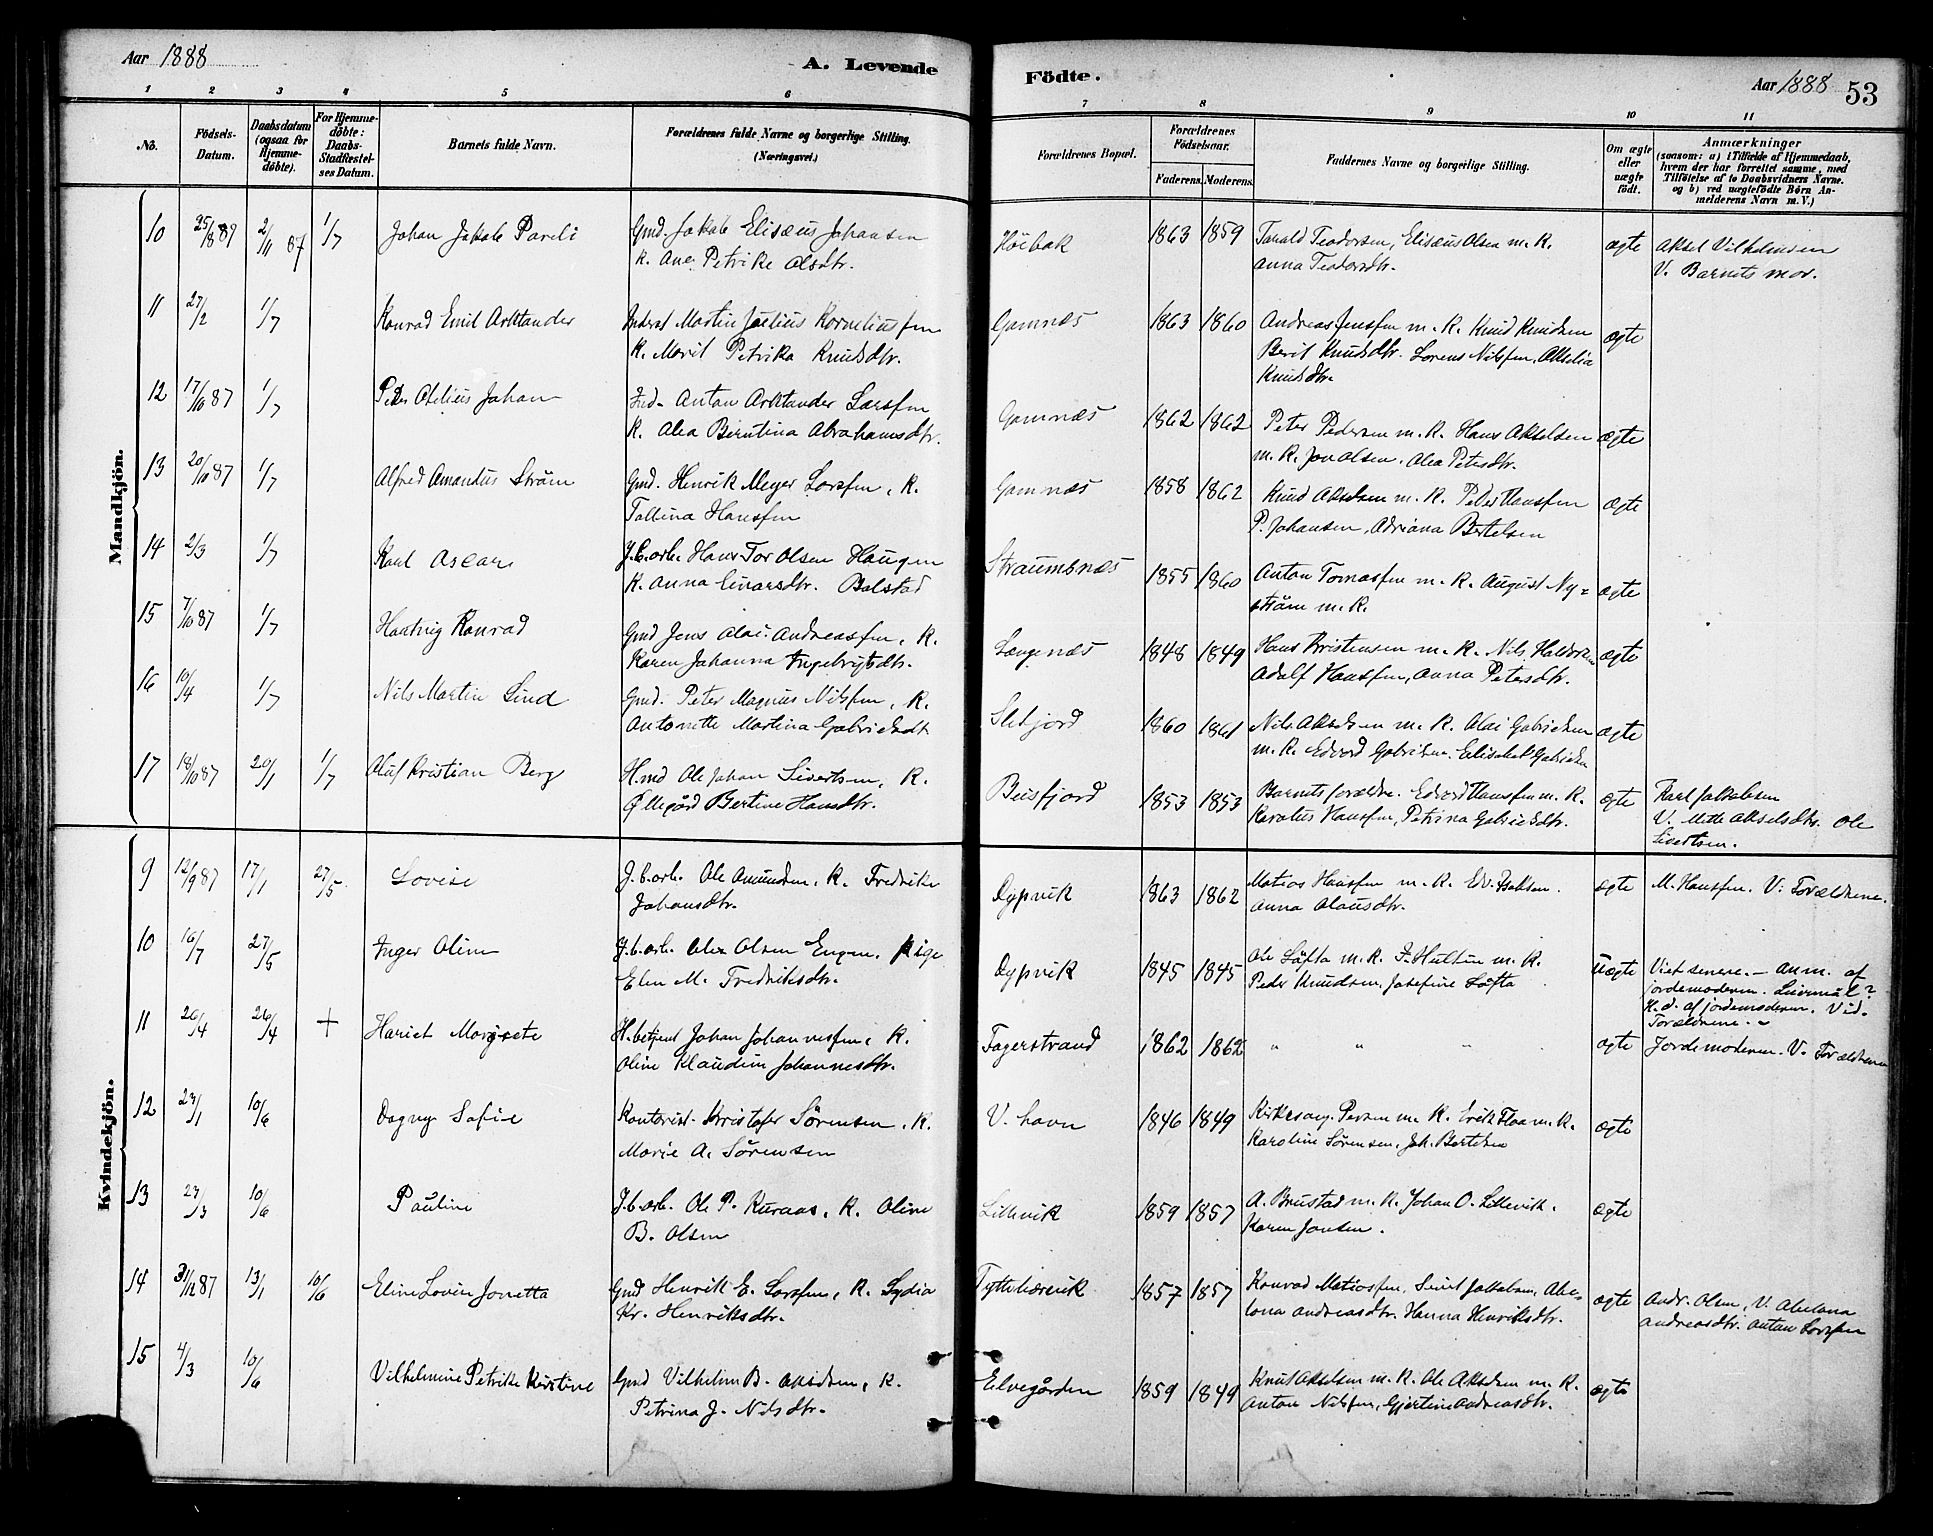 Aar 1888
A. Levende
Födte.
Aar 1888 53
1 2 3 4 5 6 7 8 9 10 11
No.
Födsels-Datum.
Daabsdatum (ogsaa for Hjemme-döbte).
For Hjemme-döbte: Daabs-Stadfæstel-ses Datum.
Barnets fulde Navn.
Forældrenes fulde Navne og borgerlige Stilling. (Næringsvei.)
Forældrenes Bopæl.
Forældrenes Födselsaar.
Faderens. Moderens.
Faddernes Navne og borgerlige Stilling.
Om ægte eller uægte födt.
Anmærkninger
(saasom: a) i Tilfælde af Hjemmedaab,
hvem der har forrettet samme, med
Tilföielse af to Daabsvidners Navne.
og b) ved uægtefödte Börn An-
melderens Navn m. V.)
Mandkjön.
10 25/8 89 2/11 87 1/7 Johan Jakob Pareli Gmd. Jakob Elisæus Johansen Höibak 1863 1859 Tarald Teodorsen, Elisæus Olsen m. K. ægte Aksel Vilhelmsen
K. Ane Petrike Olsdtr. Anna Teodorsdtr. V. Barnets mor.
11 27/2 1/7 Konrad Emil Arktander Inderst Martin Julius Korneliussen Gamnæs 1863 1860 Andreas Jenssen m. K. Knud Knudsen ægte
K. Marit Petrika Knudsdtr. Berit Knudsdtr. Lorens Nilssen, Akselia
Knudsdtr.
12 17/10 87 1/7 Peder Otelius Johan Ind. Anton Arktander Larssen Gamnæs 1862 1862 Peter Pedersen m. K. Hans Akselsen ægte
K. Alea Berntina Abrahamsdtr. m. K. Jon Olsen, Alea Petersdtr.
13 20/10 87 1/7 Alfred Amandus Ström Gmd. Henrik Meyer Larssen, K. Gamnæs 1858 1862 Knud Akselsen m. K. Peder Hanssen ægte
Tallina Hanssen P. Johansen, Adriana Bertelsen
14 2/3 1/7 Karl Oscar J.b.arb. Hans Tor Olsen Haugen Straumsnæs 1855 1860 Anton Tomassen m. K. August Ny= ægte
K. Anna Einarsdtr. Balstad ström m. K.
15 7/10 87 1/7 Hartvig Konrad Gmd Jens Olai Andreassen, K. Langenæs 1848 1849 Hans Kristensen m. K. Nils Haldorsen ægte
Karen Johanna Ingebrigtsdtr. Adolf Hanssen, Anna Petersdtr.
16 10/4 1/7 Nils Martin Lind Gmd. Peter Magnus Nilssen, K. Sletjord 1860 1861 Nils Akselsen m. K. Olai Gabrielsen ægte
Antonette Martina Gabrielsdtr. m. K. Edvard Gabrielsen, Elisabet Gabrielsen
17 18/10 87 20/1 1/7 Oluf Kristian Berg H.md Ole Johan Sivertsen, K. Beisfjord 1853 1853 Barnets forældre. Edvard Hanssen m. K. ægte Karl Jakobsen
Øllegård Bertine Hansdtr. Karolus Hanssen, Petrina Gabrielsdtr. V. Mette Akselsdtr. Ole
Sivertsen.
Kvindekjön.
9 12/9 87 17/1 27/5 Lovise J.b.arb. Ole Amundsen, K. Fredrike Dypvik 1863 1862 Matias Hanssen m. K. Edv. Isaksen. ægte M. Hanssen. V. Forældrene.
Johansdtr. Anna Olausdtr.
10 16/7 27/5 Inger Oline J.b.arb. Ole Olsen Engen. Pige Dypvik 1845 1845 Ole Löfta m. K. F. Hultin m. K. uægte Viet senere. – Anm. af
Elen M. Fredriksdtr. Peder Knudsen, Josefine Löfta jordemoderen. Leiermål?
11 26/4 26/4 + Hariet Margrete H.betjent Johan Johannessen, K. Fagerstrand 1862 1862 " " " ægte H.d. af jordemoderen. Vid.
Forældrene. –
Oline Klaudine Johannesdtr. Jordemoderen. V. Forældrene
12 23/1 10/6 Dagny Sofie Kontorist. Kristofer Sörensen, K. V. havn 1846 1849 Kirkesang. Persen m. K. Erik Floa m. K. ægte
Marie A. Sörensen Karoline Sörensen, Joh. Bertelsen
13 23/3 10/6 Pauline J.b.arb. Ole P. Kuraas, K. Oline Lillevik 1859 1857 A. Brustad m. K. Johan O. Lillevik. ægte
B. Olsen Karen Jonsen.
14 31/12 87 13/1 10/6 Eline Lovise Jonetta Gmd Henrik E. Larssen, K. Lydia Tyttebærvik 1857 1857 Konrad Matiassen, Sivert Jakobsen, Abe= ægte Andr. Olsen, V. Abelona
Kr. Henriksdtr. lona Andreasdtr. Hanna Henriksdtr. Andreasdtr. Anton Larssen
15 4/3 10/6 Vilhelmine Petrike Kirstine Gmd Vilhelm B. Akselsen, K. Elvegården 1859 1849 Knut Akselsen m. K. Ole Akselsen m. K. ægte
Petrina J. Nilsdtr. Anton Nilssen, Gjertine Andreasdtr.